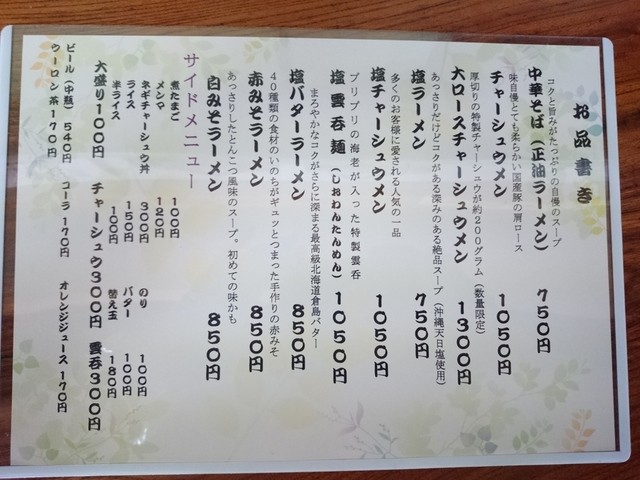 お品書き
コクと旨みがたっぷりの自慢のスープ
中華そば(正油ラーメン) 750円
味自慢とても柔らかい国産豚の肩ロース
チャーシュウメン 1050円
厚切りの特製チャーシュウが約200グラム(数量限定)
大ロースチャーシュウメン 1300円
あっさりだけどコクがある深みのある絶品スープ(沖縄天日塩使用)
塩ラーメン 750円
多くのお客様に愛される人気の一品
塩チャーシュウメン 1050円
プリプリの海老が入った特製雲呑
塩雲呑麺(しおわんたんめん) 1050円
まろやかなコクがさらに深まる最高級北海道倉島バター
塩バターラーメン 850円
40種類の食材のいのちがギュッとつまった手作りの赤みそ
赤みそラーメン 850円
あっさりしたとんこつ風味のスープ。初めての味かも
白みそラーメン 850円
サイドメニュー
煮たまご 100円 のり 100円
メンマ 120円 バター 100円
ネギチャーシュウ丼 300円 替え玉 180円
ライス 150円
半ライス 100円
大盛り100円 チャーシュウ300円 雲呑300円
ビール(中瓶)540円 コーラ170円 オレンジジュース170円
ウーロン茶170円